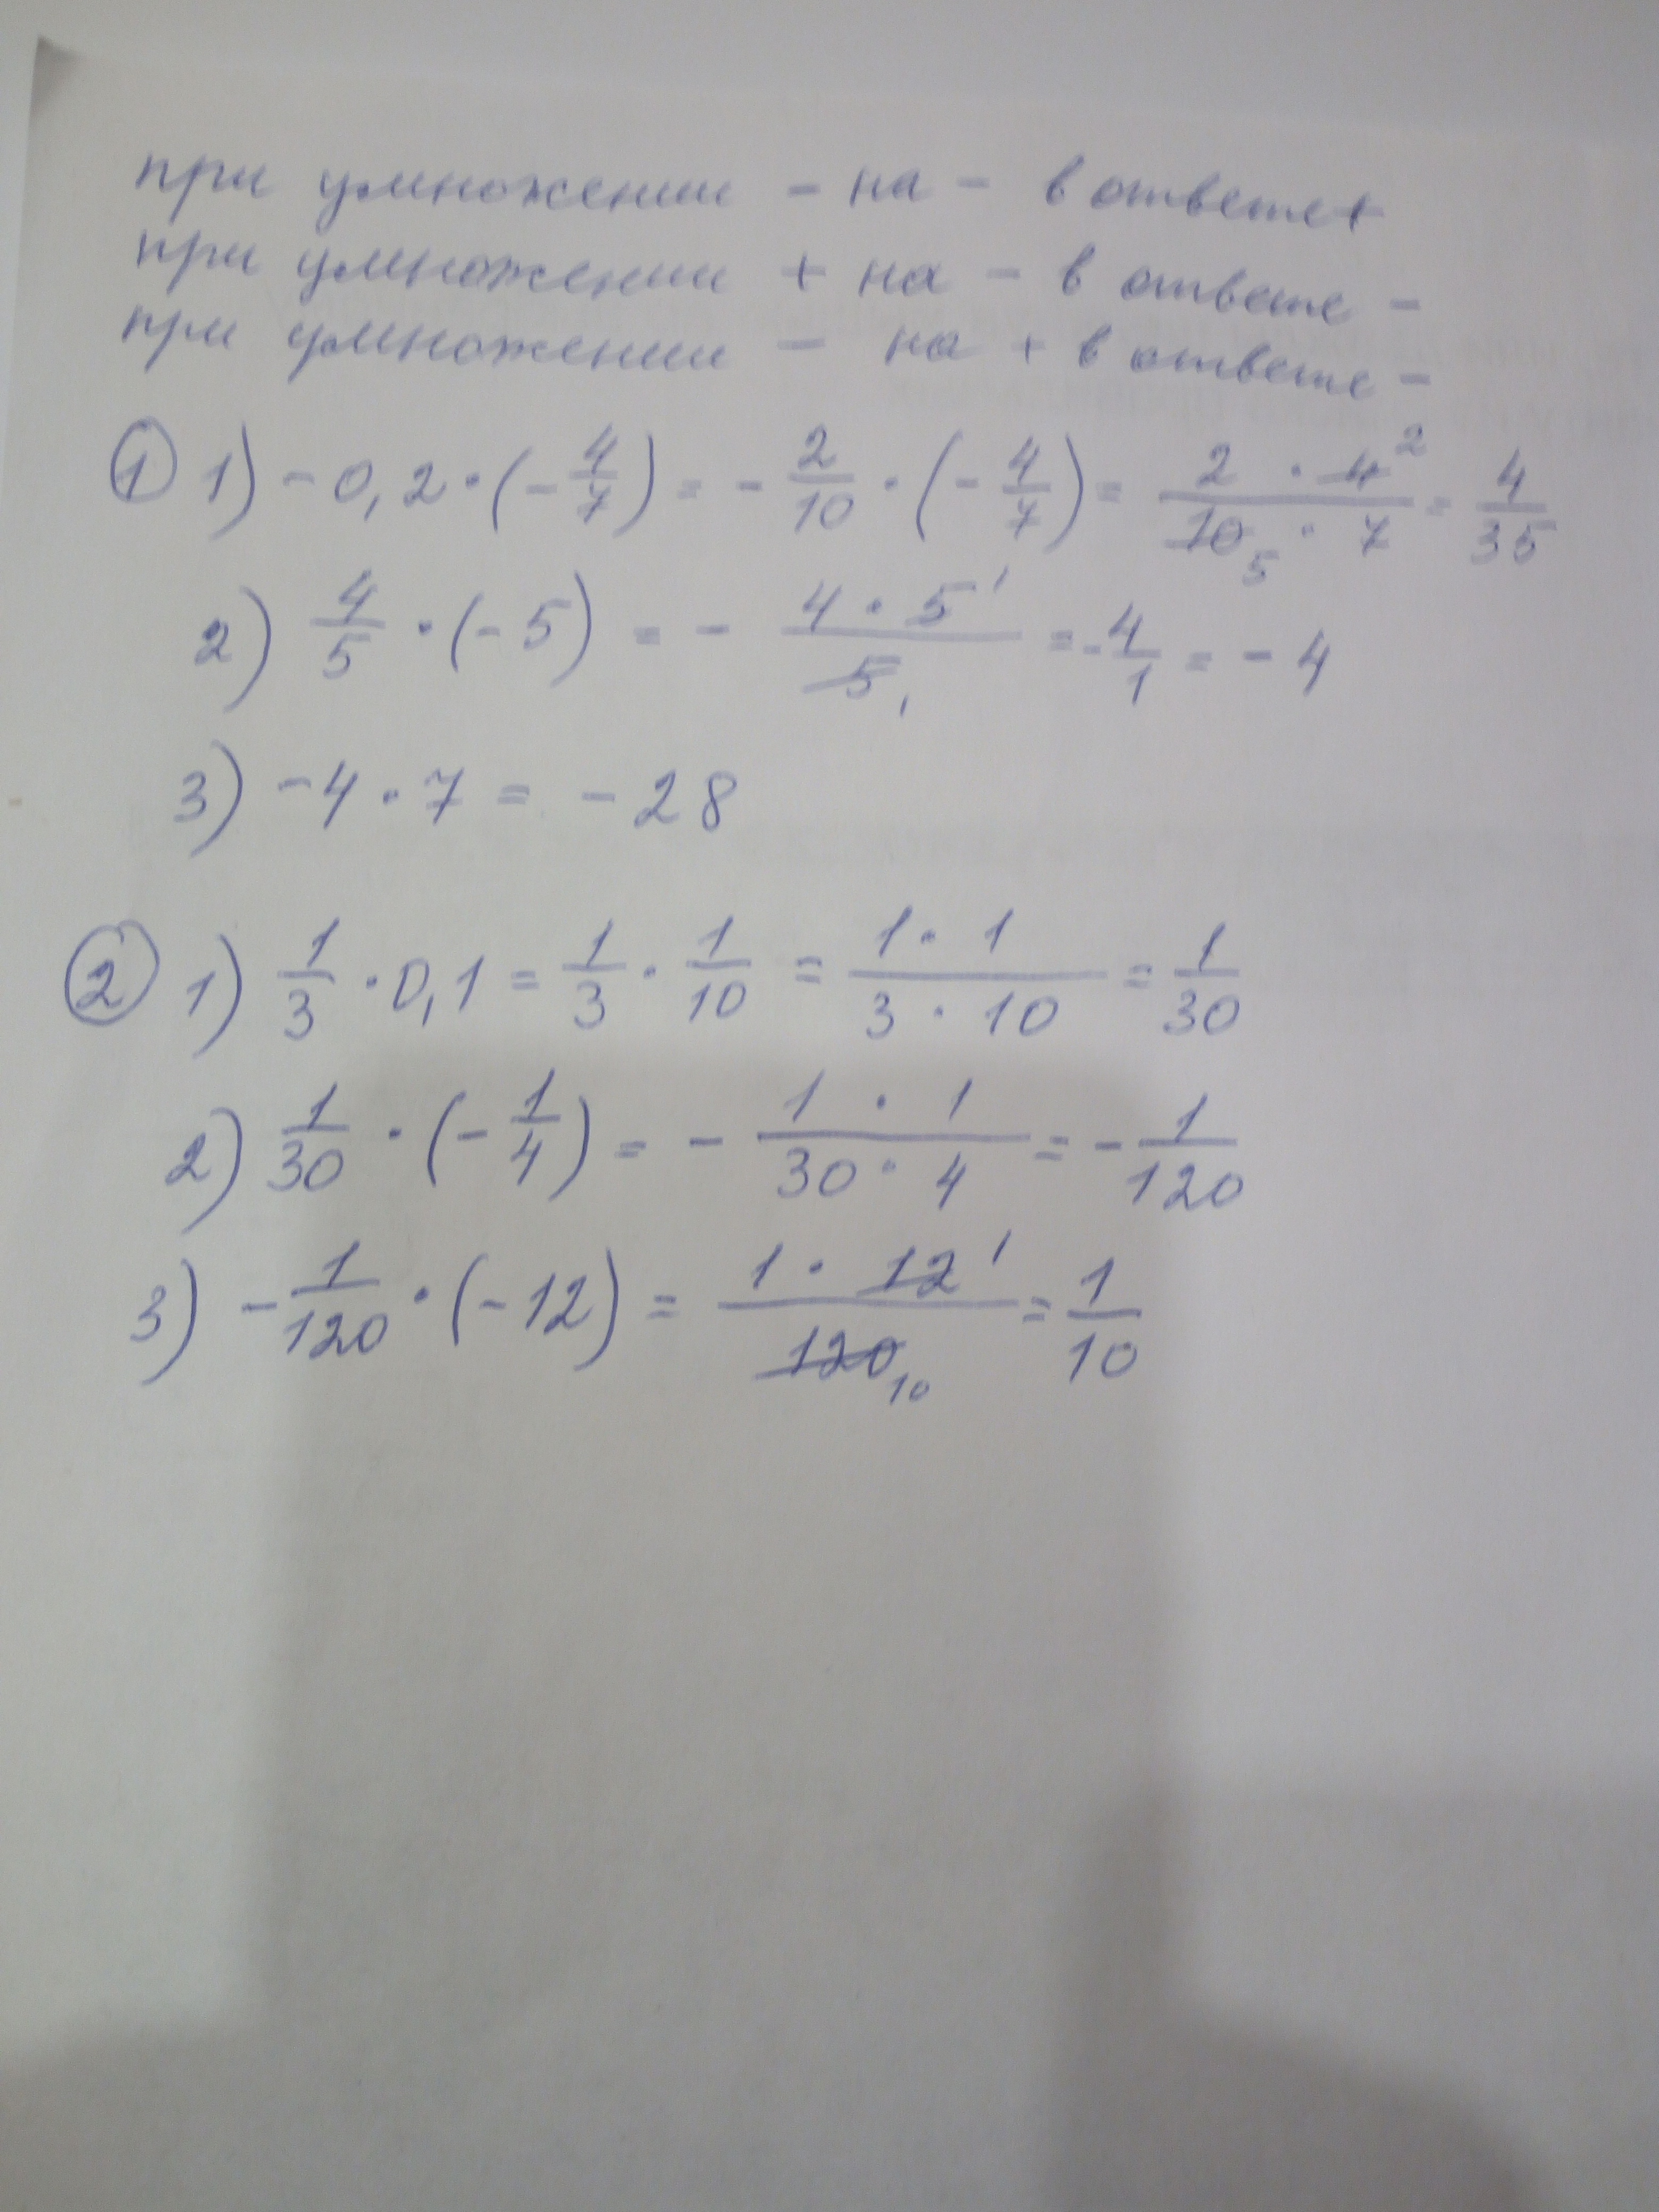 при умножении - на - в ответе +
при умножении + на - в ответе -
при умножении - на + в ответе -
① 1) - 0,2 · (- 4/7) = - 2/10 · (- 4/7) = 2 · 4² / 10₅ · 7 = 4/35
2) 4/5 · (- 5) = - 4 · 5¹ / 5₁ = - 4/1 = - 4
3) - 4 · 7 = - 28
② 1) 1/3 · 0,1 = 1/3 · 1/10 = 1 · 1 / 3 · 10 = 1/30
2) 1/30 · (- 1/4) = - 1 · 1 / 30 · 4 = - 1/120
3) - 1/120 · (- 12) = 1 · 12¹ / 120₁₀ = 1/10